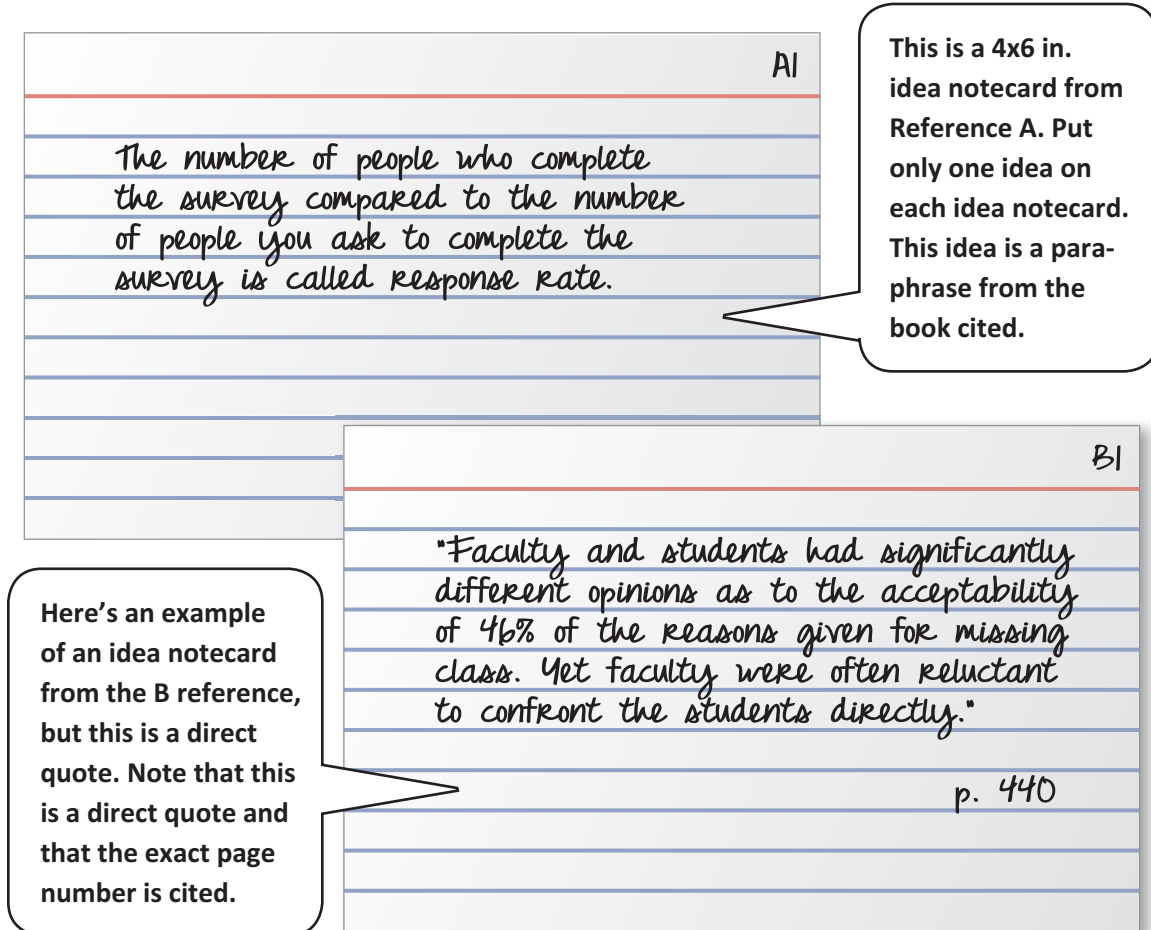 A1
The number of people who complete
the survey compared to the number
of people you ask to complete the
survey is called response rate.
This is a 4x6 in.
idea notecard from
Reference A. Put
only one idea on
each idea notecard.
This idea is a para-
phrase from the
book cited.
B1
"Faculty and students had significantly
different opinions as to the acceptability
of 46% of the reasons given for missing
class. Yet faculty were often reluctant
to confront the students directly."
p. 440
Here's an example
of an idea notecard
from the B reference,
but this is a direct
quote. Note that this
is a direct quote and
that the exact page
number is cited.